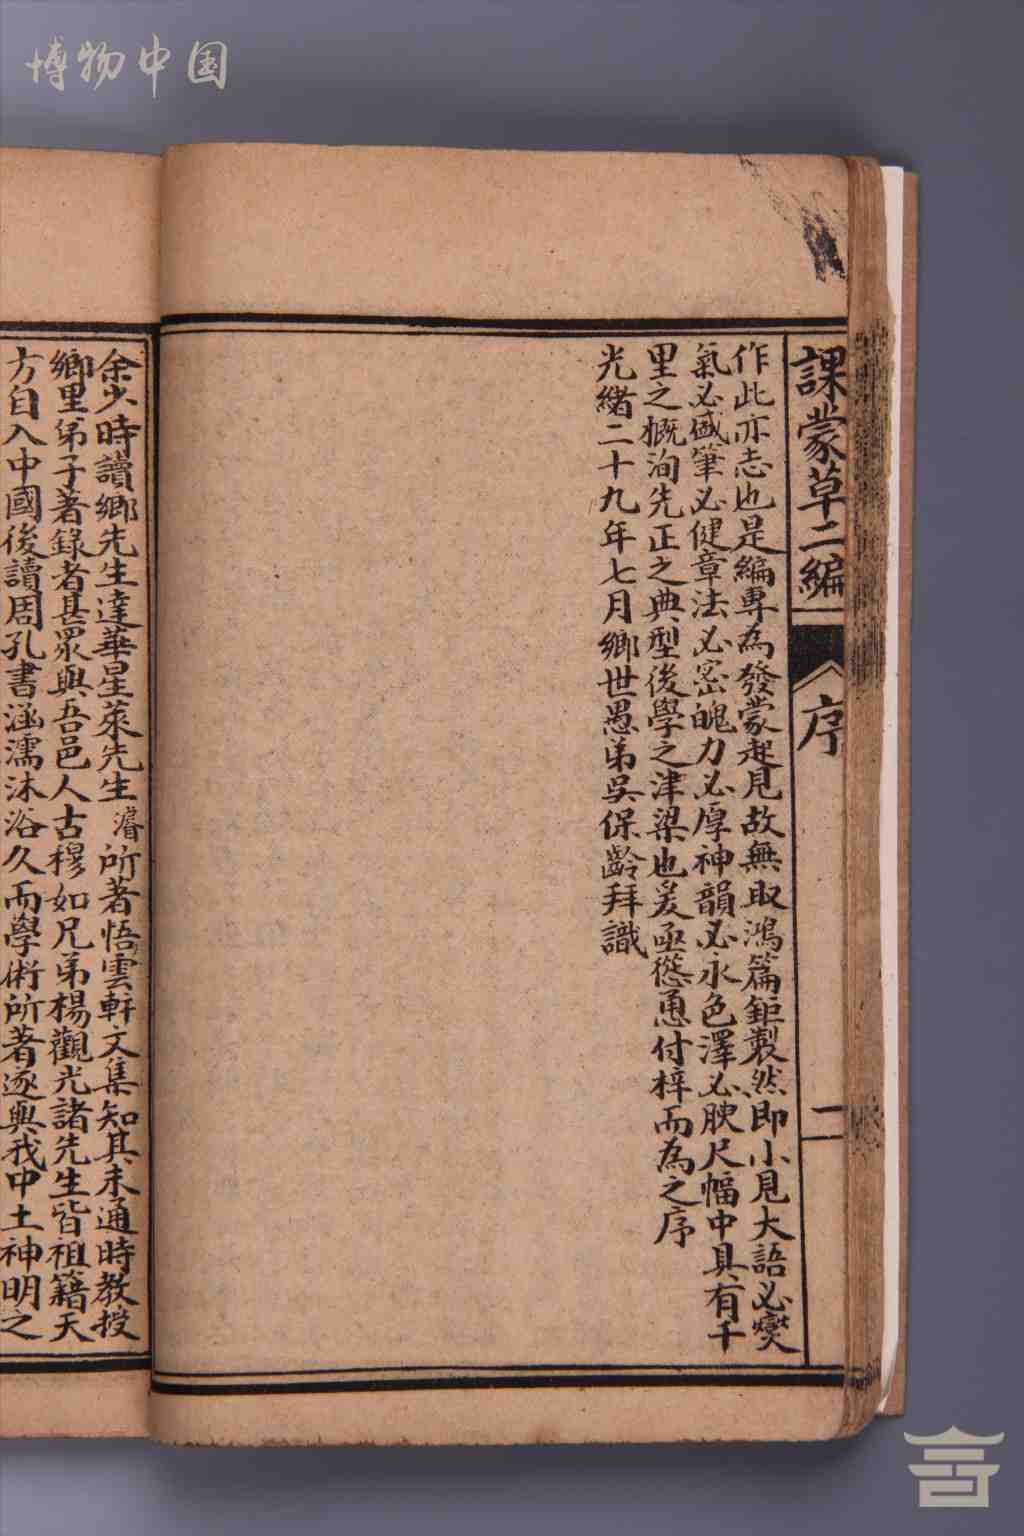 博物中国
課蒙草二編
序
二
作此亦志也是編專為發蒙起見故無取鴻篇鉅製然即小見大語必爽
氣必盛筆必健章法必密魄力必厚神韻必永色澤必腴尺幅中具有千
里之概洵先正之典型後學之津梁也爰亟慫恿付梓而為之序
光緒二十九年七月鄉世愚弟吳保齡拜識
余少時讀鄉先生達華星萊先生濬所著悟雲軒文集知其未通時教授
鄉里弟子著錄者甚眾與吾邑人古穆如兄弟楊觀光諸先生皆祖籍天
方自入中國後讀周孔書涵濡沐浴久而學術所著遂與我中土神明之